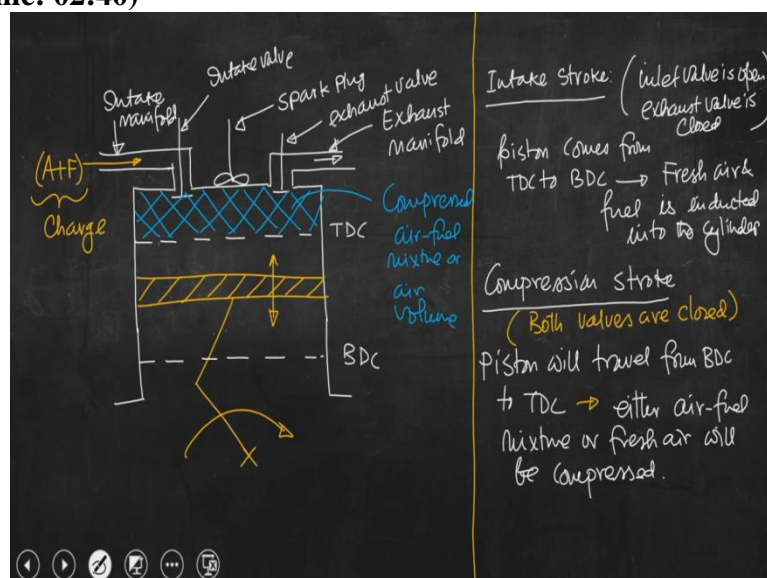 ne: 02:40)
Intake valve
Intake
manifold
spark plug
exhaust valve
Exhaust
manifold
(A+F)
Charge
Compressed
air-fuel
mixture or
air
volume
TDC
BDC
Intake Stroke: (inlet valve is open
exhaust valve is
closed)
Piston comes from
TDC to BDC → Fresh air &
fuel is inducted
into the cylinder
Compression stroke
(Both valves are closed)
Piston will travel from BDC
to TDC → either air-fuel
mixture or fresh air will
be compressed.